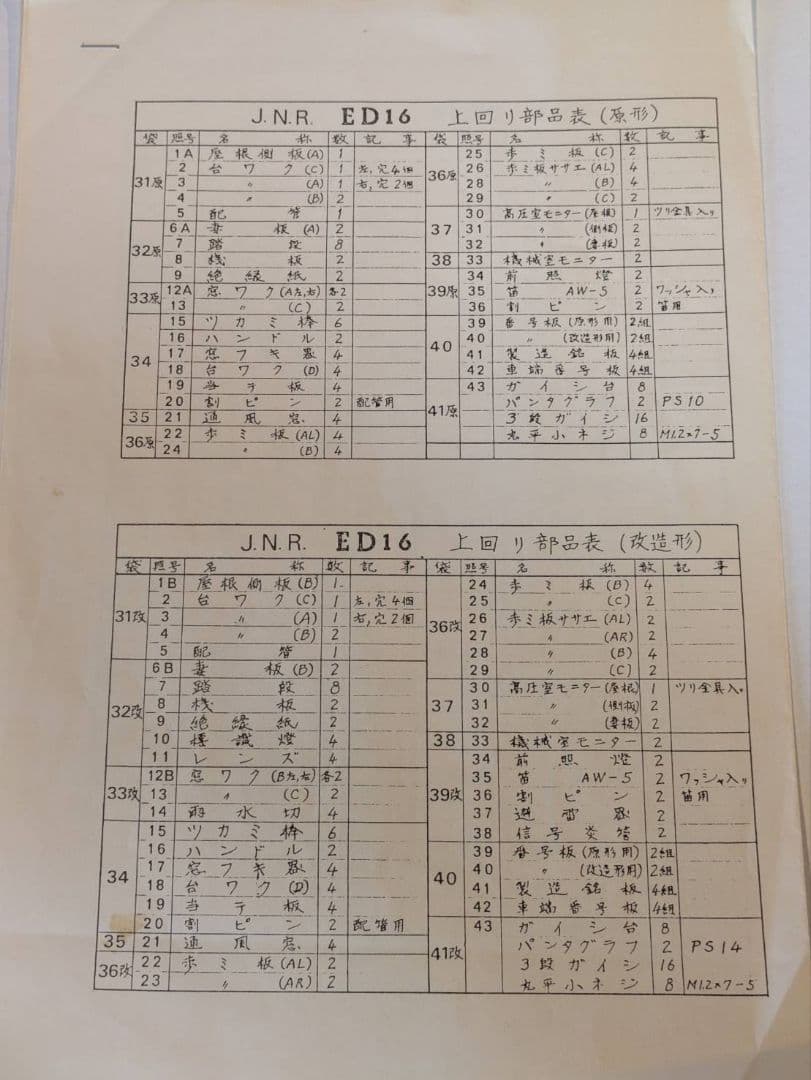 J.N.R. ED16 上回り部品表(原形)
袋 照号 名 称 数 記 事
31原 1A 屋根側板(A) 1
2 台ワク(C) 1 左,穴4個
3 〃 (A) 1 右,穴2個
4 〃 (B) 2
5 配管 1
32原 6A 妻板(A) 2
7 踏段 8
8 桟板 2
9 絶縁紙 2
33原 12A 窓ワク(A左,右) 各2
13 〃 (C) 2
34 15 ツカミ棒 6
16 ハンドル 2
17 窓フキ器 4
18 台ワク(D) 4
19 当テ板 4
20 割ピン 2 配管用
35 21 通風窓 4
36原 22 歩ミ板(AL) 4
24 〃 (B) 4
袋 照号 名 称 数 記 事
36原 25 歩ミ板(C) 2
26 歩ミ板ササエ(AL) 4
28 〃 (B) 4
29 〃 (C) 2
37 30 高圧室モニター(屋根) 1 ツリ金具入リ
31 〃 (側板) 2
32 〃 (妻板) 2
38 33 機械室モニター 2
39原 34 前照燈 2
35 笛 AW-5 2 ワッシャ入リ
36 割ピン 2 笛用
40 39 番号板(原形用) 2組
40 〃 (改造形用) 2組
41 製造銘板 4組
42 車端番号板 4組
41原 43 ガイシ台 8
パンタグラフ 2 PS10
3段ガイシ 16
丸平小ネジ 8 M1.2×7-5
J.N.R. ED16 上回リ部品表(改造形)
袋 照号 名 称 数 記 事
31改 1B 屋根側板(B) 1
2 台ワク(C) 1 左,穴4個
3 〃 (A) 1 右,穴2個
4 〃 (B) 2
5 配管 1
32改 6B 妻板(B) 2
7 踏段 8
8 桟板 2
9 絶縁紙 2
10 標識燈 4
11 レンズ 4
33改 12B 窓ワク(B左,右) 各2
13 〃 (C) 2
14 雨水切 4
34 15 ツカミ棒 6
16 ハンドル 2
17 窓フキ器 4
18 台ワク(D) 4
19 当テ板 4
20 割ピン 2 配管用
35 21 通風窓 4
36改 22 歩ミ板(AL) 2
23 〃 (AR) 2
袋 照号 名 称 数 記 事
36改 24 歩ミ板(B) 4
25 〃 (C) 2
26 歩ミ板ササエ(AL) 2
27 〃 (AR) 2
28 〃 (B) 4
29 〃 (C) 2
37 30 高圧室モニター(屋根) 1 ツリ金具入リ
31 〃 (側板) 2
32 〃 (妻板) 2
38 33 機械室モニター 2
39改 34 前照燈 2
35 笛 AW-5 2 ワッシャ入リ
36 割ピン 2 笛用
37 避雷器 2
38 信号炎管 2
40 39 番号板(原形用) 2組
40 〃 (改造形用) 2組
41 製造銘板 4組
42 車端番号板 4組
41改 43 ガイシ台 8
パンタグラフ 2 PS14
3段ガイシ 16
丸平小ネジ 8 M1.2×7-5